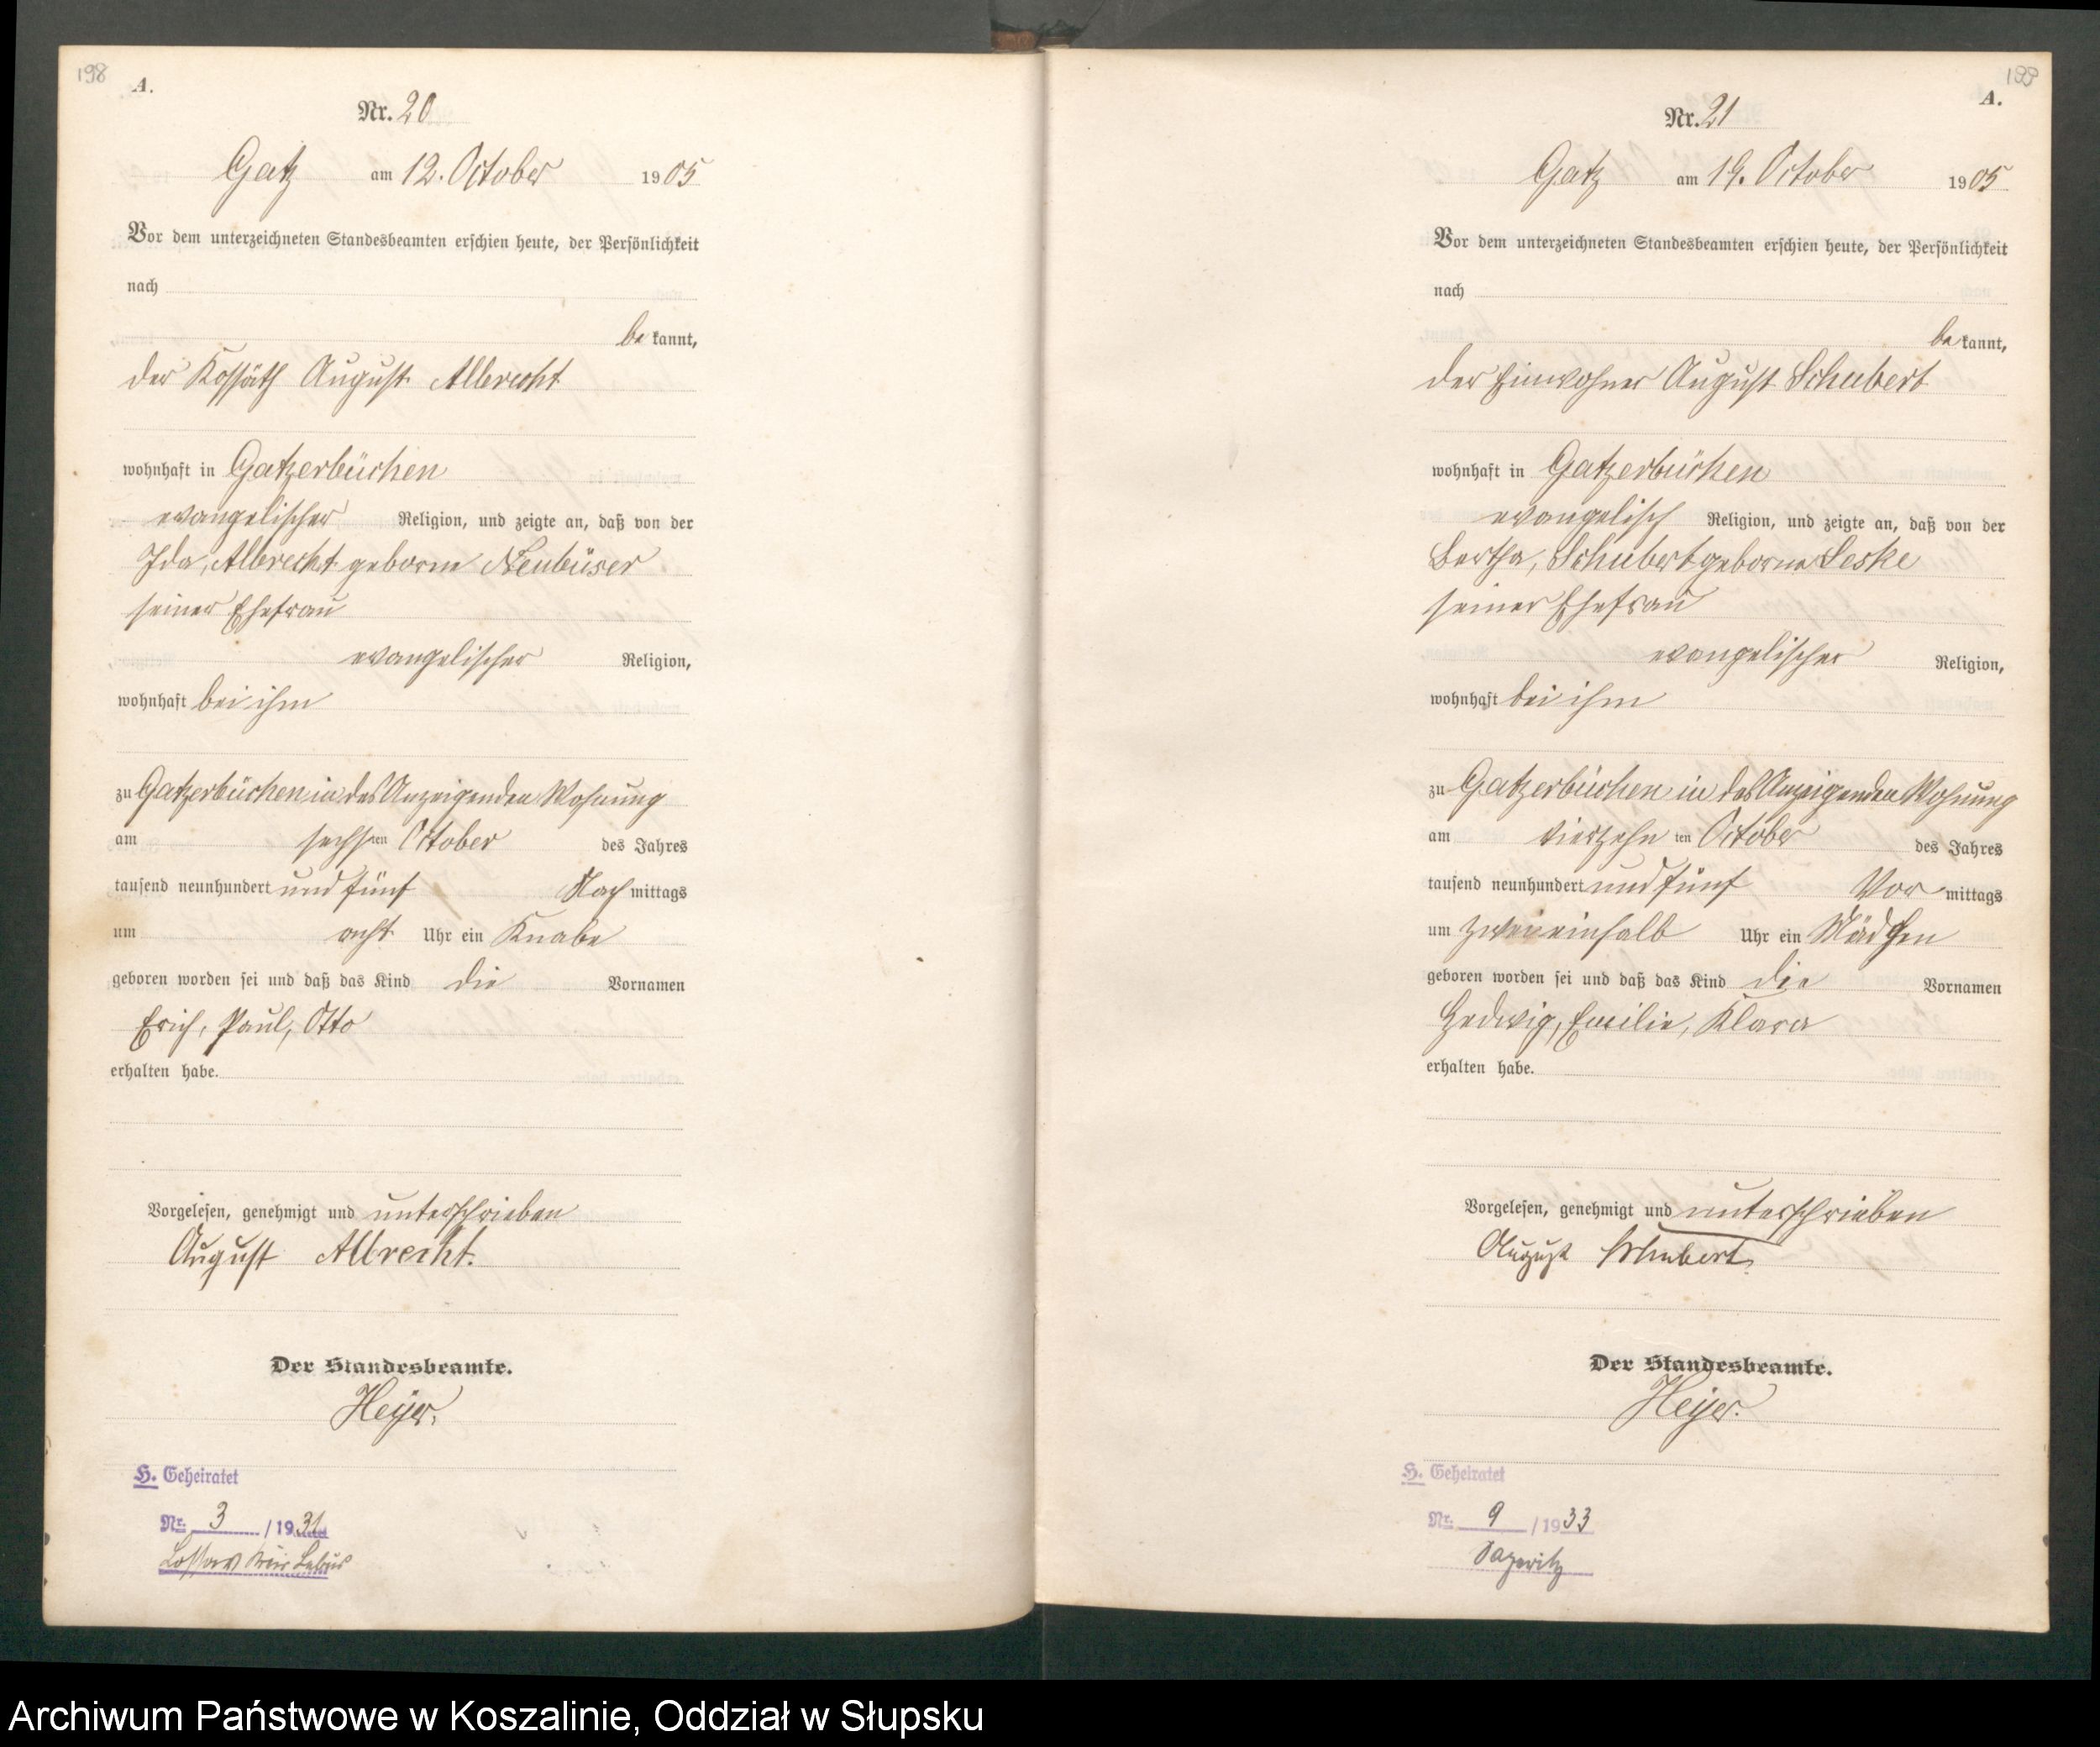 198
A.
Nr. 20
Gatz am 12. October 1905
Vor dem unterzeichneten Standesbeamten erschien heute, der Persönlichkeit
nach
bekannt,
der Kossäth August Albrecht
wohnhaft in Gatzerbüchen
evangelischer Religion, und zeigte an, daß von der
Ida, Albrecht geborne Neubüser
seiner Ehefrau
evangelischer Religion,
wohnhaft bei ihm
zu Gatzerbüchen in des Anzeigenden Wohnung
am sechsten October des Jahres
tausend neunhundert und fünf Nachmittags
um acht Uhr ein Knabe
geboren worden sei und daß das Kind die Vornamen
Erich, Paul, Otto
erhalten habe.
Vorgelesen, genehmigt und unterschrieben
August Albrecht.
Der Standesbeamte.
Heyer.
H. Geheiratet
Nr. 3 /1931
Lossow Kreis Lebus
199
A.
Nr. 21
Gatz am 19. October 1905
Vor dem unterzeichneten Standesbeamten erschien heute, der Persönlichkeit
nach
bekannt,
der Einwohner August Schubert
wohnhaft in Gatzerbüchen
evangelisch Religion, und zeigte an, daß von der
Bertha, Schubert geborne Leske
seiner Ehefrau
evangelischer Religion,
wohnhaft bei ihm
zu Gatzerbüchen in des Anzeigenden Wohnung
am vierzehnten October des Jahres
tausend neunhundert und fünf Vormittags
um zweieinhalb Uhr ein Mädchen
geboren worden sei und daß das Kind die Vornamen
Hedwig, Emilie, Klara
erhalten habe.
Vorgelesen, genehmigt und unterschrieben
August Schubert
Der Standesbeamte.
Heyer.
H. Geheiratet
Nr. 9 /1933
Archiwum Państwowe w Koszalinie, Oddział w Słupsku